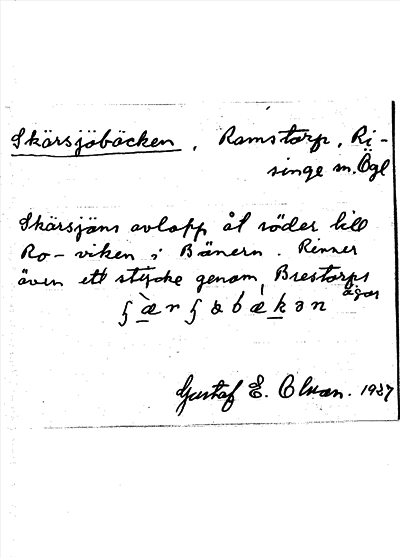 Skärsjöbäcken, Ramstorp, Ri-
singe sn. Ögl
Skärsjöns avlopp åt söder till
Ro-viken i Bänern. Rinner
även ett stycke genom Brestorps
ägor
Gustaf E. Olsson. 1937